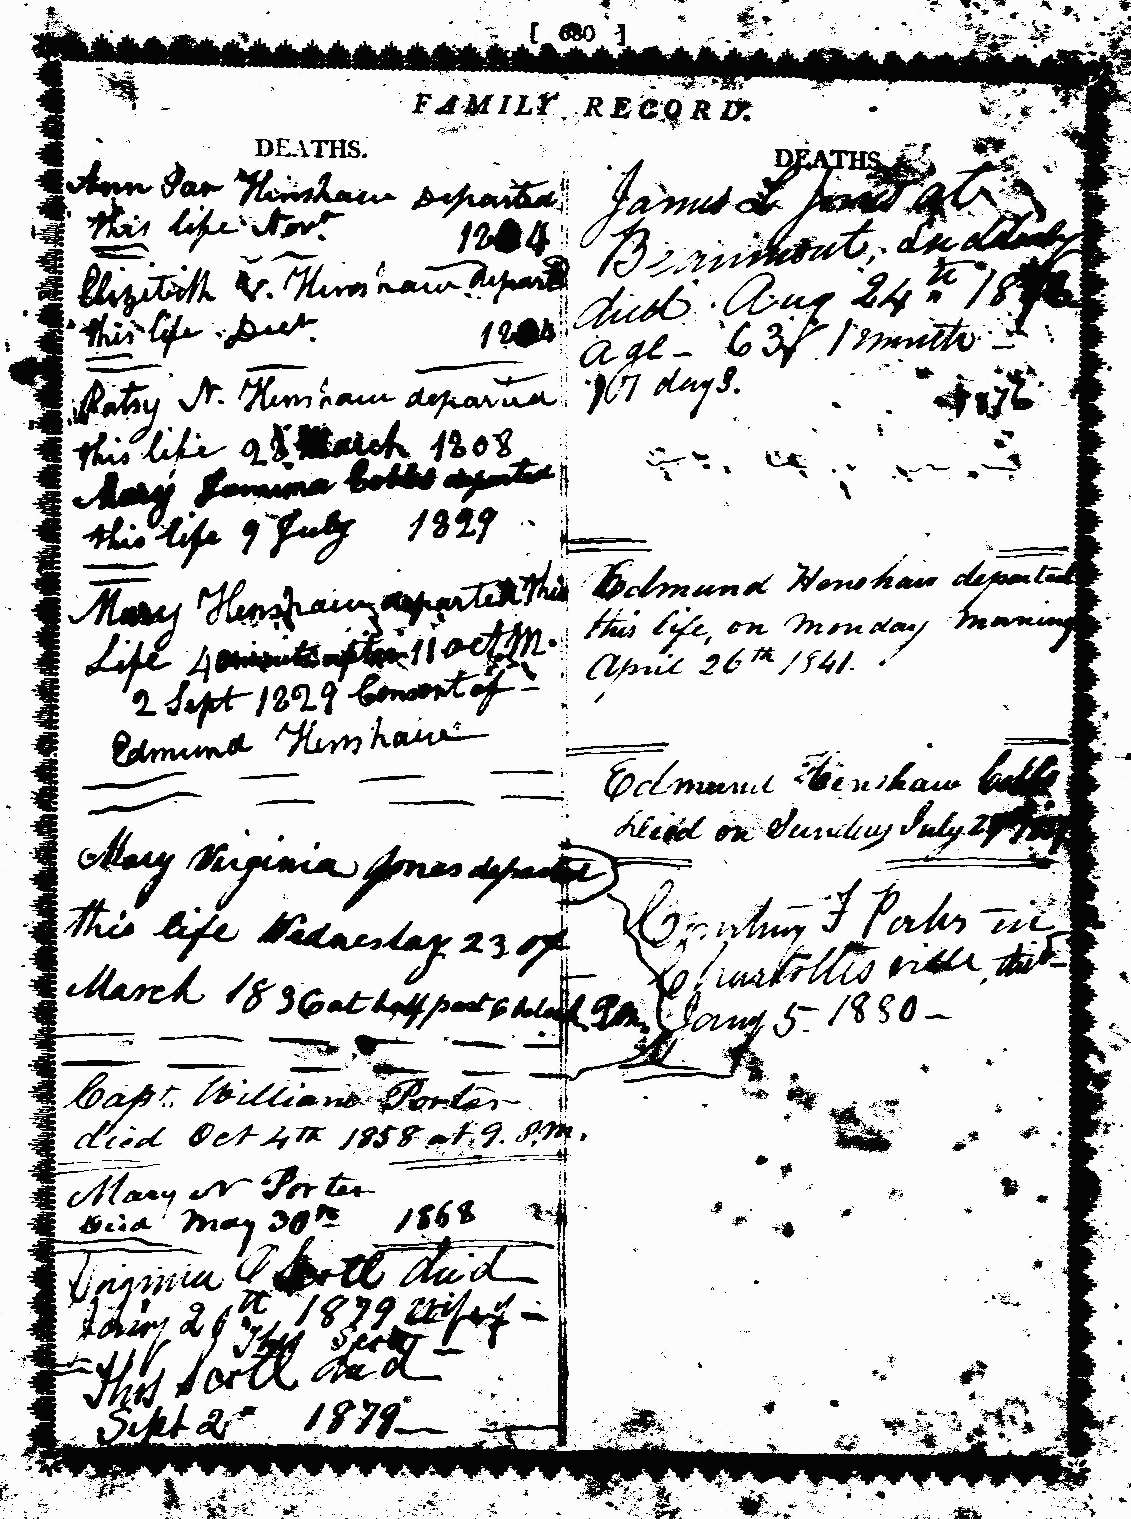 [ 680 ]
FAMILY RECORD.
DEATHS.
Ann Henshaw Departed
this life Novr
Elizabeth W. Henshaw depart
this life Dect.
Patsy N. Henshaw departed
this life 28 March 1808
Mary Jamima Cobbs departed
this life 9 July 1829
Mary Henshaw departed this
Life 40 minits after 11 oct M.
2 Sept 1829 Consort of
Edmund Henshaw
Mary Virginia Jones departed
this life Wednesday 23 of
March 1836 at half past 6 oclock P.M.
Capt. William Porter
died Oct 4th 1858 at 9. P.M.
Mary N Porter
Died May 30th 1868
Virginia Scott died
1879 wife of
Thos Scott
Thos Scott died
Sept 2 1879
DEATHS.
James L Jones at
Beaumont, Suddenly
died Aug 24th 18
age - 63 1 month -
17 days.
1876
Edmund Henshaw departed
this life, on Monday morning
April 26th 1841.
Edmund Henshaw Cobbs
Died on Sunday July
in
Charlottesville,
Jany 5. 1880 -